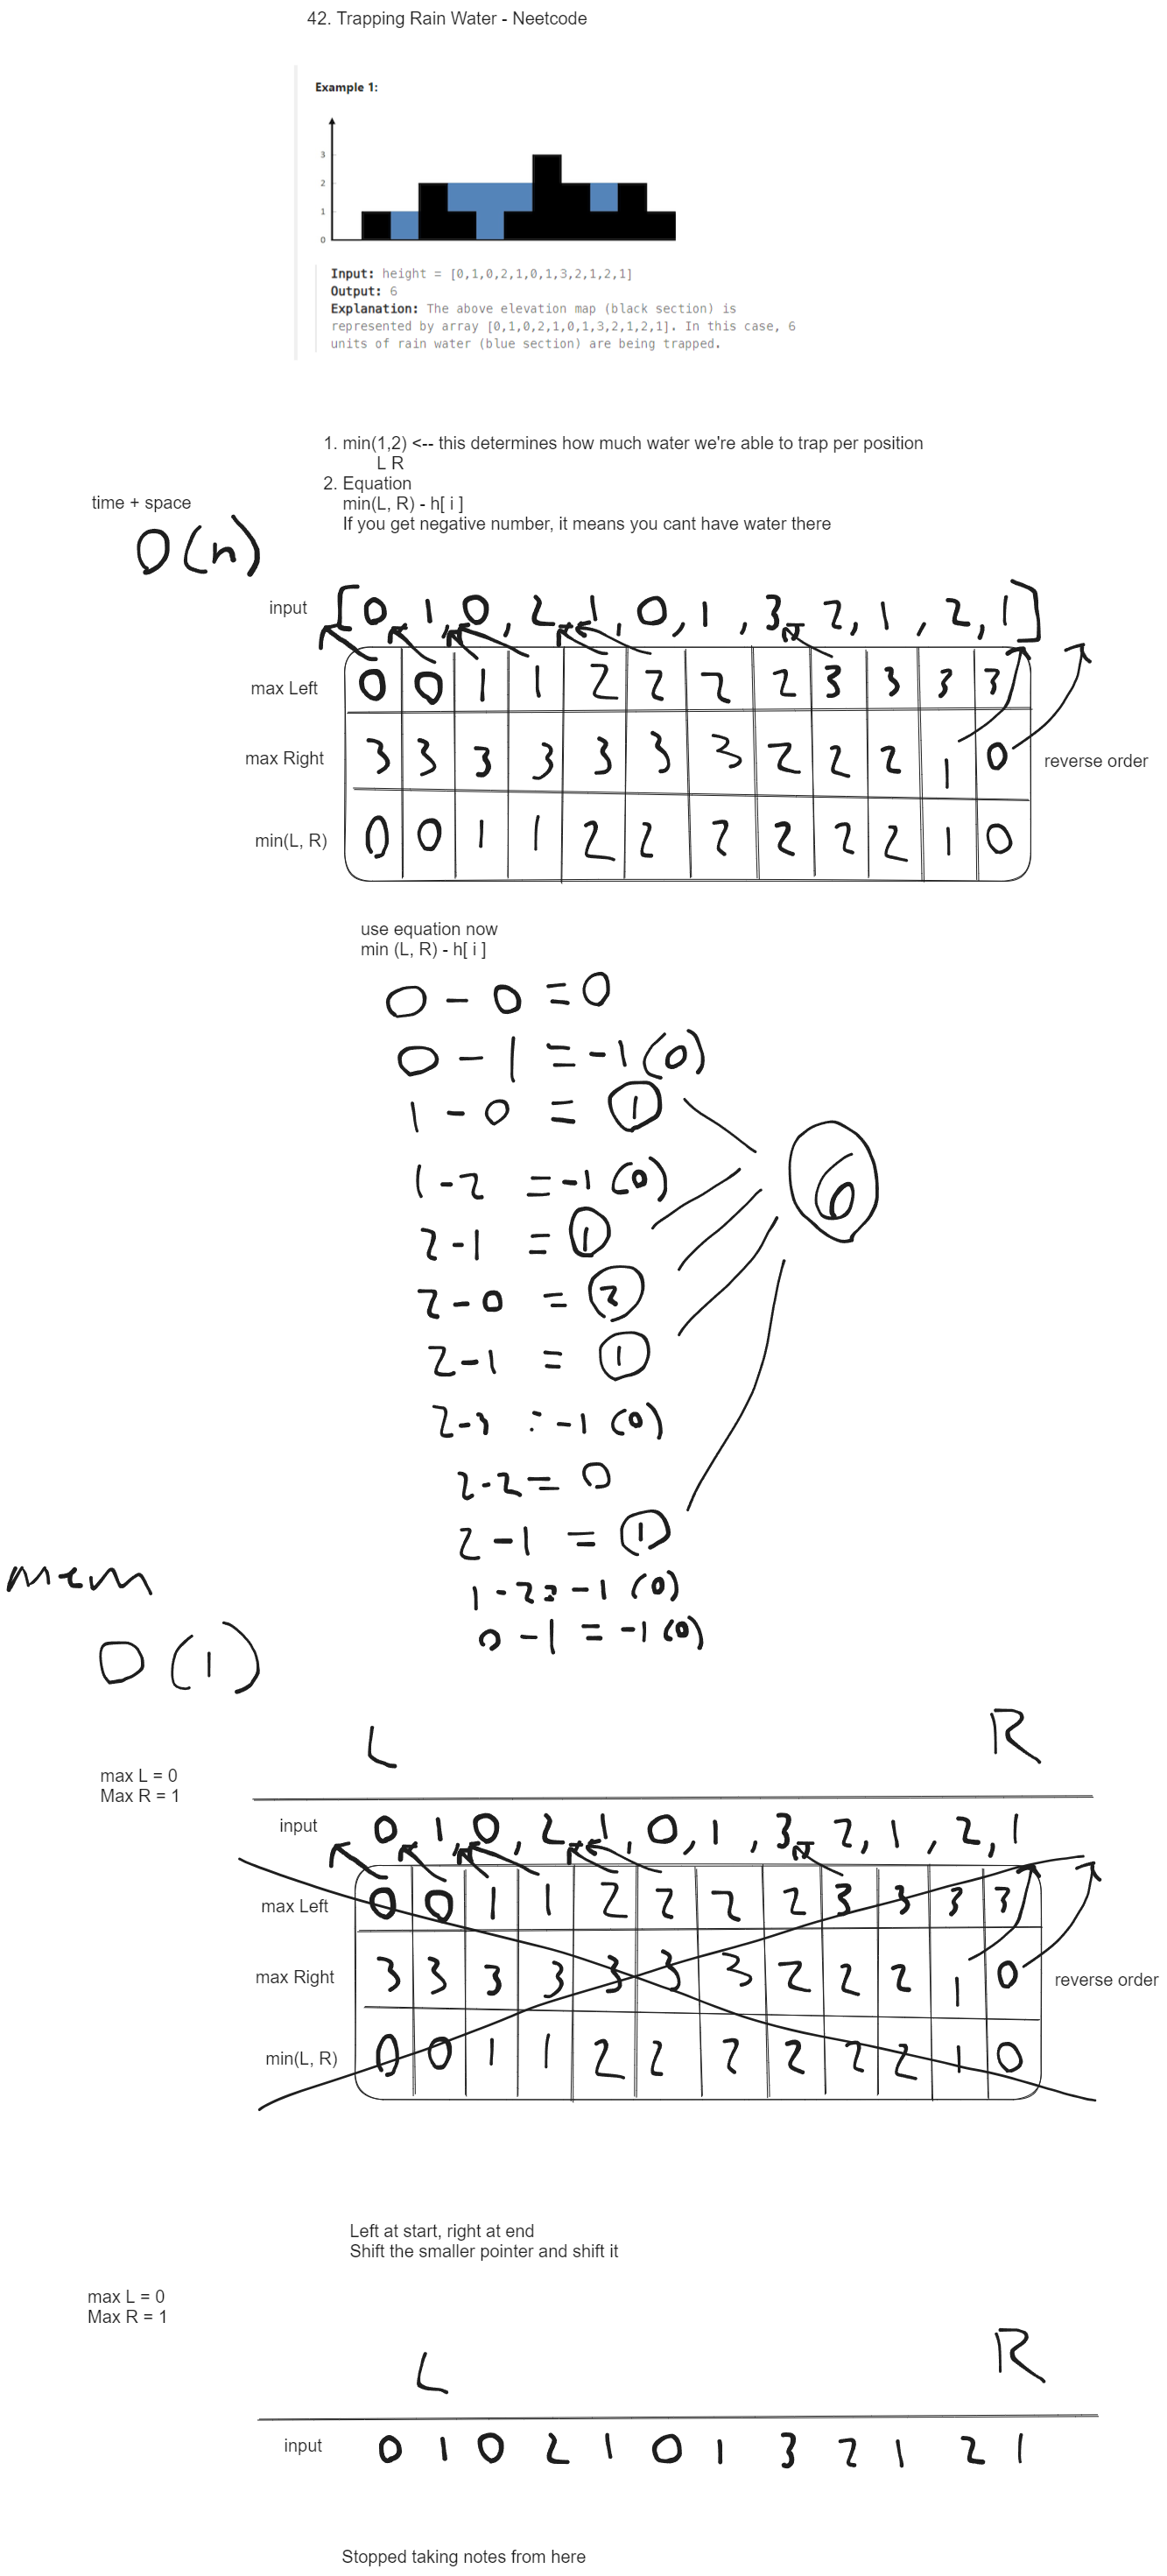 42. Trapping Rain Water - Neetcode
Example 1:
3
2
1
0
Input: height = [0,1,0,2,1,0,1,3,2,1,2,1]
Output: 6
Explanation: The above elevation map (black section) is
represented by array [0,1,0,2,1,0,1,3,2,1,2,1]. In this case, 6
units of rain water (blue section) are being trapped.
1. min(1,2) <-- this determines how much water we're able to trap per position
L R
2. Equation
min(L, R) - h[ i ]
If you get negative number, it means you cant have water there
time + space
O(n)
input [0, 1, 0, 2, 1, 0, 1, 3, 2, 1, 2, 1]
max Left 0 0 1 1 2 2 2 2 3 3 3 3
max Right 3 3 3 3 3 3 3 2 2 2 1 0 reverse order
min(L, R) 0 0 1 1 2 2 2 2 2 2 1 0
use equation now
min (L, R) - h[ i ]
0 - 0 = 0
0 - 1 = -1 (0)
1 - 0 = 1
1 - 2 = -1 (0)
2 - 1 = 1
2 - 0 = 2
2 - 1 = 1
2 - 3 = -1 (0)
2 - 2 = 0
2 - 1 = 1
1 - 2 = -1 (0)
0 - 1 = -1 (0)
6
mem
O(1)
L R
max L = 0
Max R = 1
input 0, 1, 0, 2, 1, 0, 1, 3, 2, 1, 2, 1
max Left 0 0 1 1 2 2 2 2 3 3 3 3
max Right 3 3 3 3 3 3 3 2 2 2 1 0 reverse order
min(L, R) 0 0 1 1 2 2 2 2 2 2 1 0
Left at start, right at end
Shift the smaller pointer and shift it
max L = 0
Max R = 1
L R
input 0 1 0 2 1 0 1 3 2 1 2 1
Stopped taking notes from here